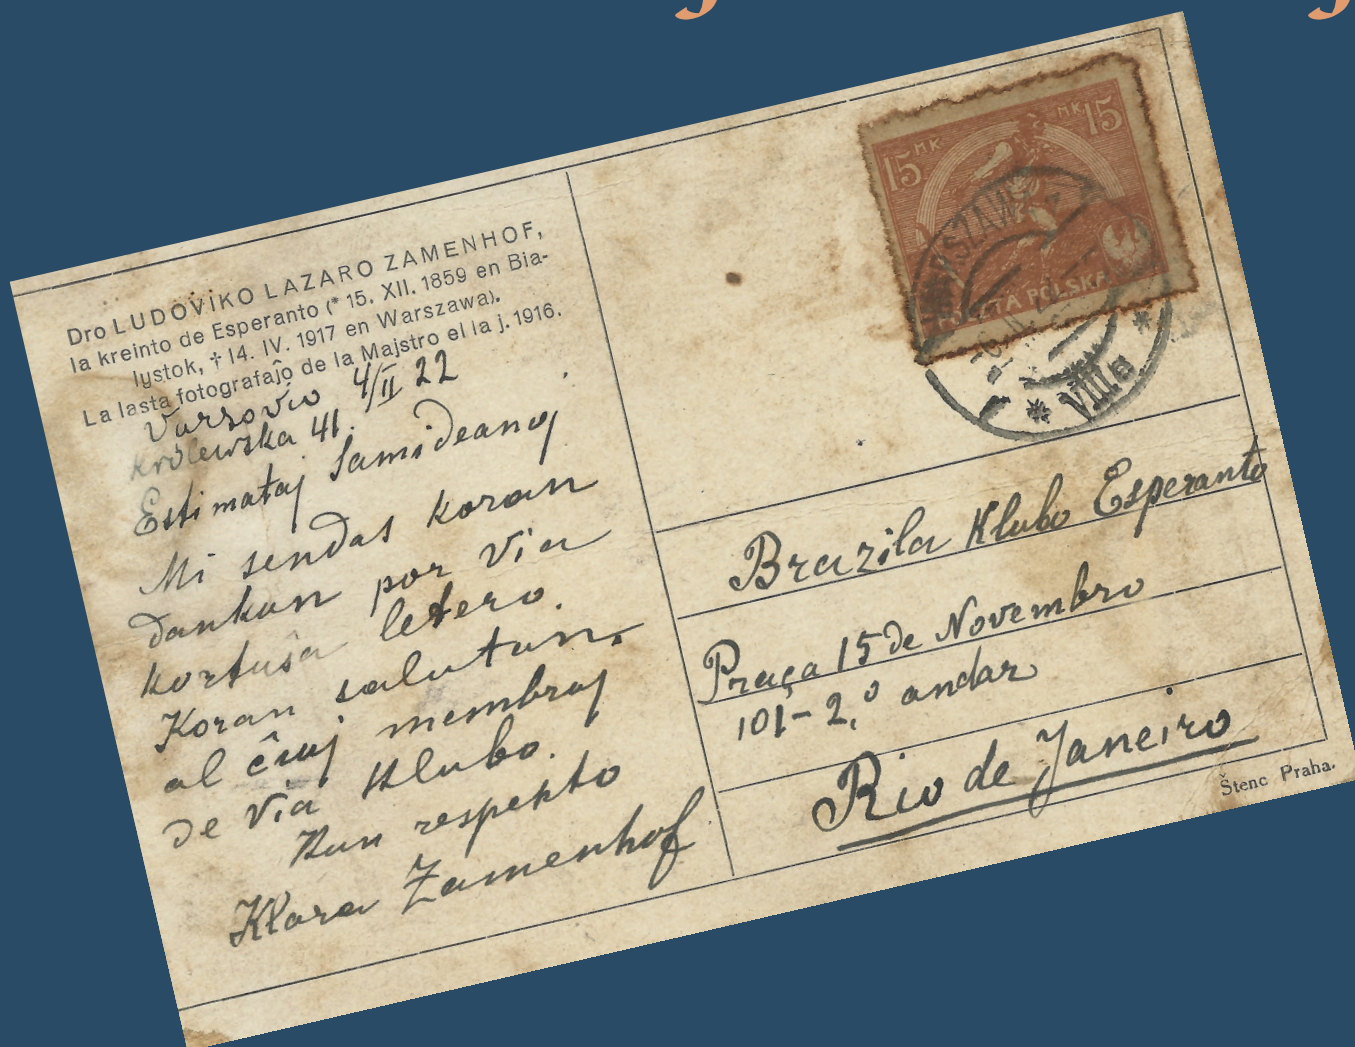 Dro LUDOVIKO LAZARO ZAMENHOF,
la kreinto de Esperanto (* 15. XII. 1859 en Bia-
lystok, † 14. IV. 1917 en Warszawa).
La lasta fotografaĵo de la Majstro el la j. 1916.
Varsovio 4/II 22
Królewska 41.
Estimataj Samideanoj
Mi sendas koran
dankon por Via
kortuŝa letero.
Koran saluton.
al ĉiuj membroj
de Via Klubo.
Kun respekto
Klara Zamenhof
15 MK MK 15
POCZTA POLSKA
WARSZAWA
VIIIa
Brazila Klubo Esperanto
Praça 15 de Novembro
101-2.º andar
Rio de Janeiro
Štenc Praha.